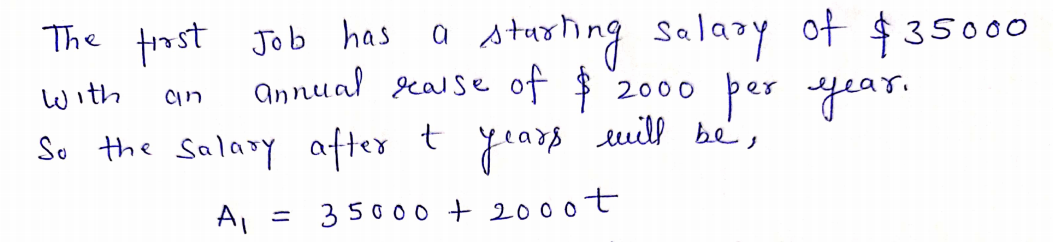 The first Job has a starting salary of $35000
with an annual raise of $ 2000 per year.
So the salary after t years will be,
A₁ = 35000 + 2000t